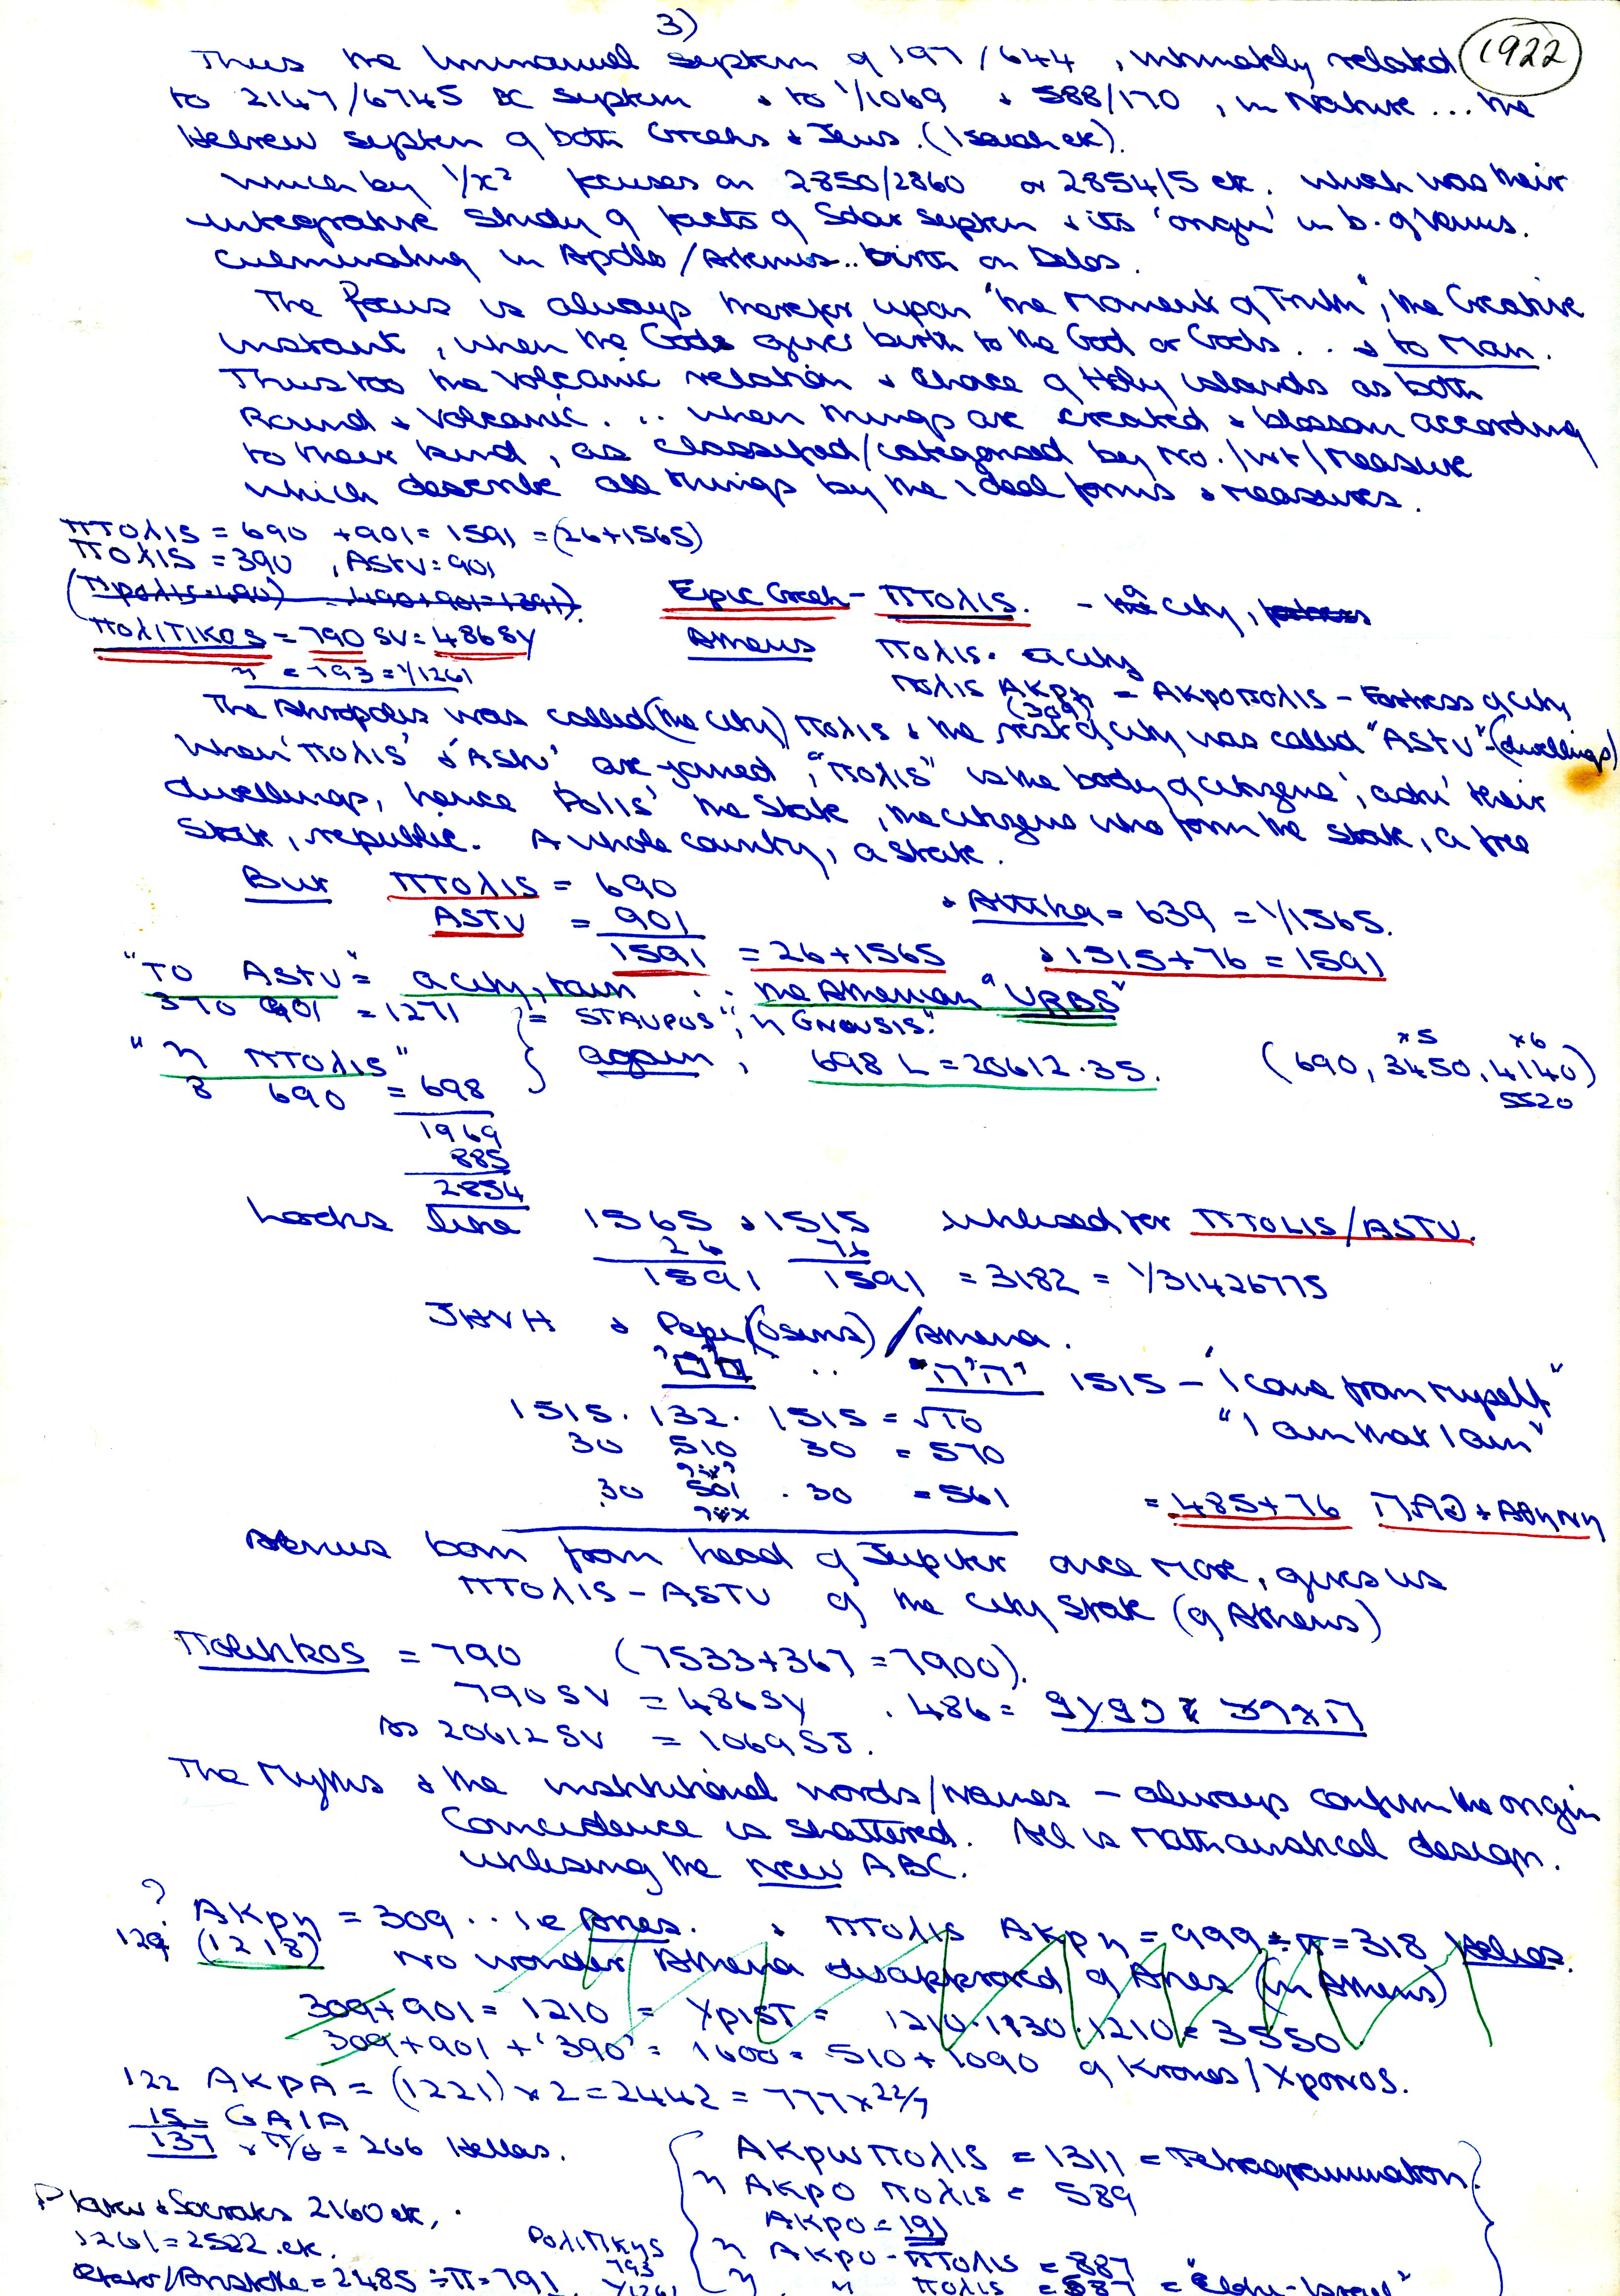 3)
1922
Thus the Immanuel system of 197/644, intimately related
to 2147/6745 BC system & to 1/1069 & 588/170, in Nature... the
Hebrew system of both Greeks & Jews. (Isaiah etc).
which by 1/x² focuses on 2850/2860 or 2854/5 etc. which was their
integrative study of facts of Solar system & its 'origin' in b. of Venus.
culminating in Apollo/Artemis.. birth on Delos.
The focus is always therefor upon "the Moment of Truth", the Creative
instant, when the Gods give birth to the God or Gods... & to Man.
Thus too the Volcanic relation & choice of Holy islands as both
Round & Volcanic... when things are created & blossom according
to their kind, as classified/categorised by No./wt/measure
which describe all things by the ideal forms & measures.
ΠΤΟλΙS = 690 + 901 = 1591 = (26+1565)
ΠΟλΙS = 390, ASTV = 901
(Προλις.490) = 490+901=1391).
Epic Greek - ΠΤΟλΙS. - a city,
ΠΟλΙΤΙΚΟS = 790 SV = 486 SY
Athens ΠΟλΙS. a city
η = 793 = 1/1261
ΠΟλΙS ΑΚρη = ΑΚρΟΠΟλΙS - Fortress of city
(309)
The Akropolis was called (the city) ΠΟλΙS & the rest of city was called "ASTV" - (dwellings)
When 'ΠΟλΙS' & 'Astu' are joined, "ΠΟλΙS" is the body of citizens', astu' their
dwellings, hence 'Polis' the State, the citizens who form the state, a free
State, republic. A whole country, a state.
But ΠΤΟλΙS = 690
& Attika = 639 = 1/1565.
ASTV = 901
1591 = 26+1565 & 1515+76 = 1591
"TO ASTV" = a city, town .. the Athenian "URBS"
370 901 = 1271 = STAUPOS", η GNOUSIS."
"η ΠΤΟλΙS" again, 698 L = 20612.35. (690, 3450, 4140)
x5 x6
8 690 = 698
5520
1969
885
2854
Looks like 1565 & 1515 utilised for ΠΤΟLIS/ASTU.
26 76
1591 1591 = 3182 = 1/31426775
JHVH & Pepi (Osiris)/Athena.
"□□" .. "Π'Π" 1515 - 'I came from Myself"
1515. 132. 1515 = √10 "I am that I am"
30 510 30 = 570
30 501 . 30 = 561 = 485+76 + Αθηνη
Athena born from head of Jupiter once more, gives us
ΠΤΟλΙS - ASTU of the City State (of Athens)
Politikos = 790 (7533+367 = 7900).
790 SV = 486 SY . 486 =
As 20612 SV = 1069 SJ.
The Myths & the institutional words/names - always confirm the origin
Coincidence is shattered. All is Mathematical design.
utilising the New ABC.
? ΑΚρη = 309 .. ie Ares. & ΠΤΟλΙS ΑΚρη = 999 ÷ π = 318 Helios.
129 (1218) No wonder Athena disapproved of Ares (in Athens)
309+901 = 1210 = ΧρΙSΤ = 1210.1130.1210 = 3550
309+901+'390' = 1600 = 510+1090 of Kronos/Χρονος.
122 ΑΚρΑ = (1221) x 2 = 2442 = 777 x 22/7
15 = GAIA
137 = 266 Hellas.
ΑΚρω ΠΟλΙS = 1311 = Tetragrammaton.
η ΑΚρΟ ΠΟλΙS = 589
Plato & Socrates 2160 etc,
ΑΚρΟ = 191
1261 = 2522 etc.
ΡολιΤΙΚηS
793
1/1261
η ΑΚρΟ - ΠΤΟλΙS = 887
Plato/Aristotle = 2485 ÷ π = 791
η " ΠΟλΙS = 587 =